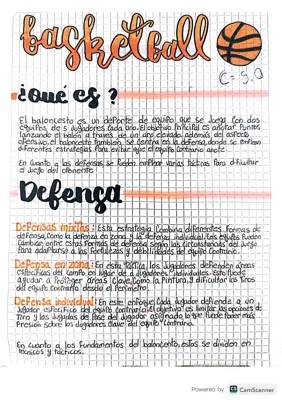 basketball
C = 5.0
¿Qué es?
El baloncesto es un deporte de equipo que se juega con dos
equipos, de 5 jugadores cada uno. El objetivo principal es anotar puntos
lanzando el balón a través de un aro elevado además del aspecto
ofensivo, el baloncesto también se centra en la defensa, donde se emplean
diferentes estrategias para evitar que el equipo contrario anote.
En cuanto a las defensas se pueden emplear varias tácticas para dificultar
el juego del oponente
Defensa
Defensas mixtas: Esta estrategia combina diferentes formas de
defensa, como la defensa en zona y la defensa individual. los equipos pueden
cambiar entre estas formas de defensa según las circunstancias del juego
para adaptarse a las fortalezas y debilidades del equipo contrario.
Defensa en zona: En esta táctica, los jugadores defienden áreas
específicas del campo en lugar de a jugadores individuales. Esto puede
ayudar a proteger áreas clave, como la pintura, y dificultar los tiros
del equipo contrario desde el perímetro.
Defensa individual: En este enfoque, cada jugador defiende a un
jugador específico del equipo contrario. el objetivo es limitar las opciones de
tiro y las jugadas de pase del jugador asignado, lo que puede poner más
presión sobre los jugadores clave del equipo contrario.
En cuanto a los fundamentos del baloncesto, estos se dividen en
técnicos y tácticos.
Powered by CS CamScanner